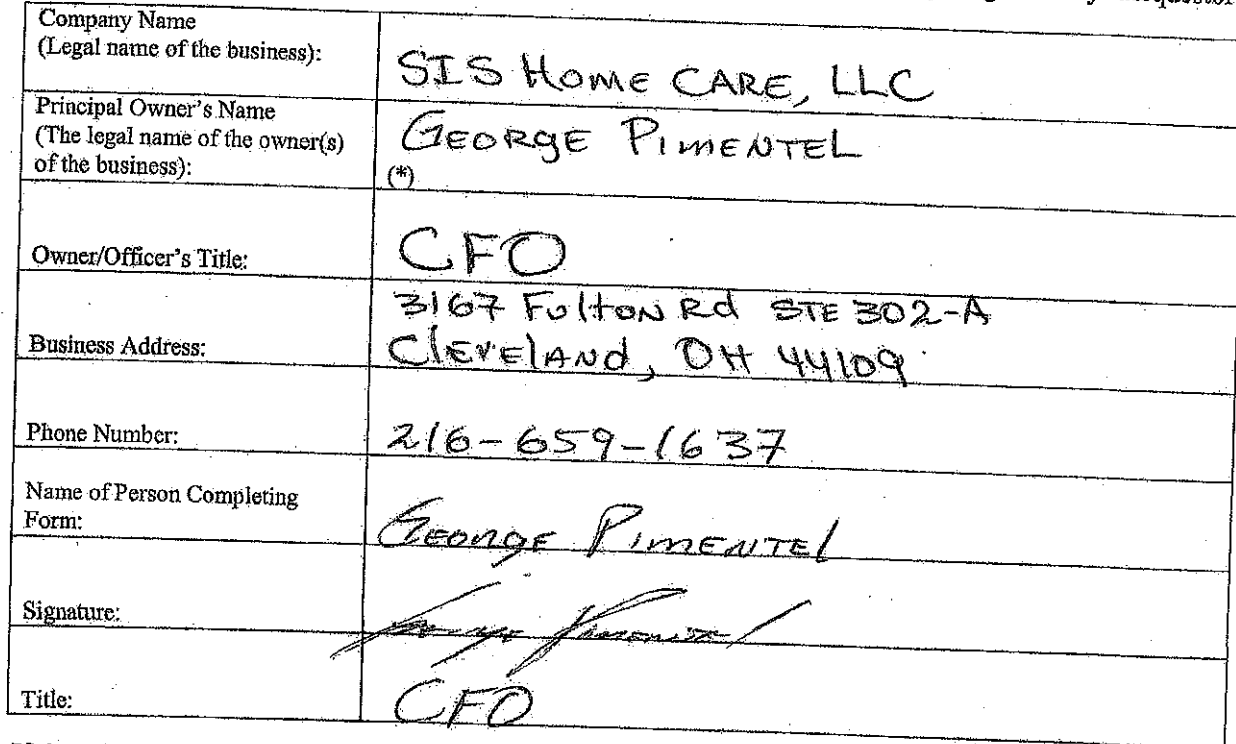 Company Name
(Legal name of the business):
SIS Home CARE, LLC
Principal Owner's Name
(The legal name of the owner(s)
of the business):
GEORGE PIMENTEL
(*)
Owner/Officer's Title:
CFO
Business Address:
3167 Fulton Rd STE 302-A
Cleveland, OH 44109
Phone Number:
216-659-1637
Name of Person Completing
Form:
GEORGE PIMENTEL
Signature:
Title:
CFO